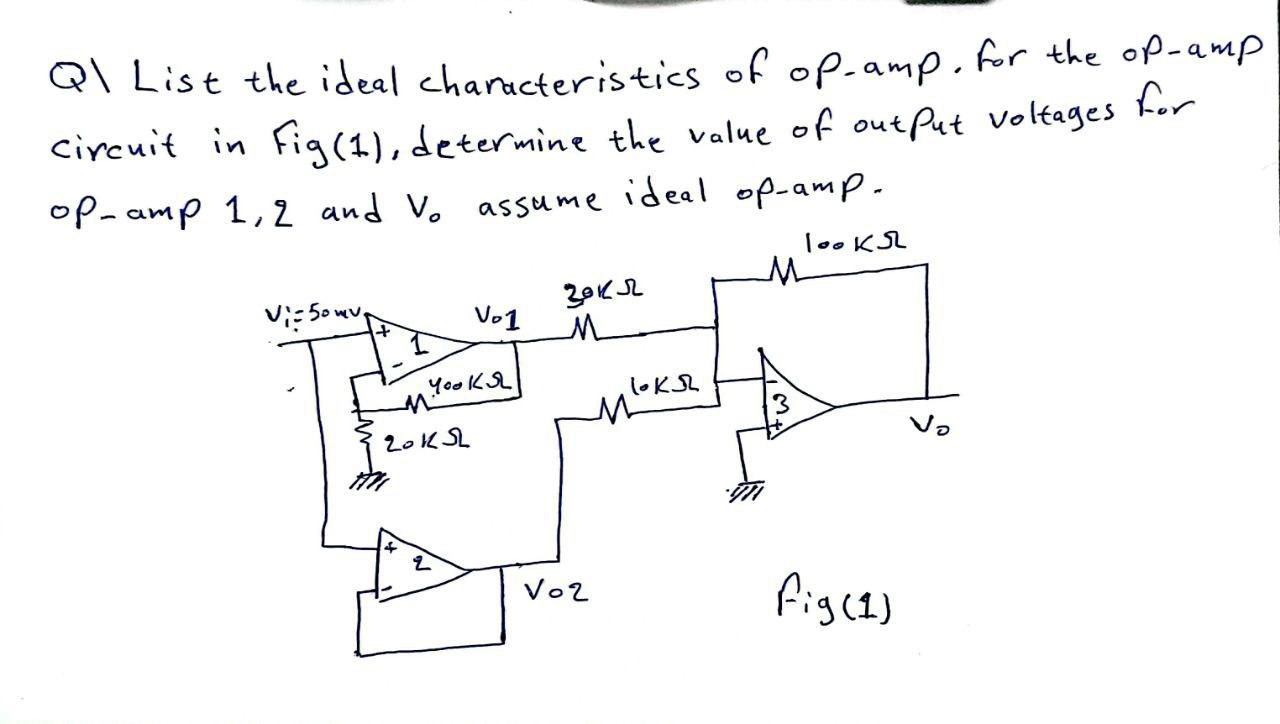 Q\ List the ideal characteristics of op-amp. for the op-amp
circuit in Fig(1), determine the value of output voltages for
op-amp 1,2 and Vo assume ideal op-amp.
100KΩ
Vi=50mv
Vo1
+
1
-
400KΩ
20KΩ
10KΩ
-
3
+
Vo
+
2
-
Vo2
fig(1)